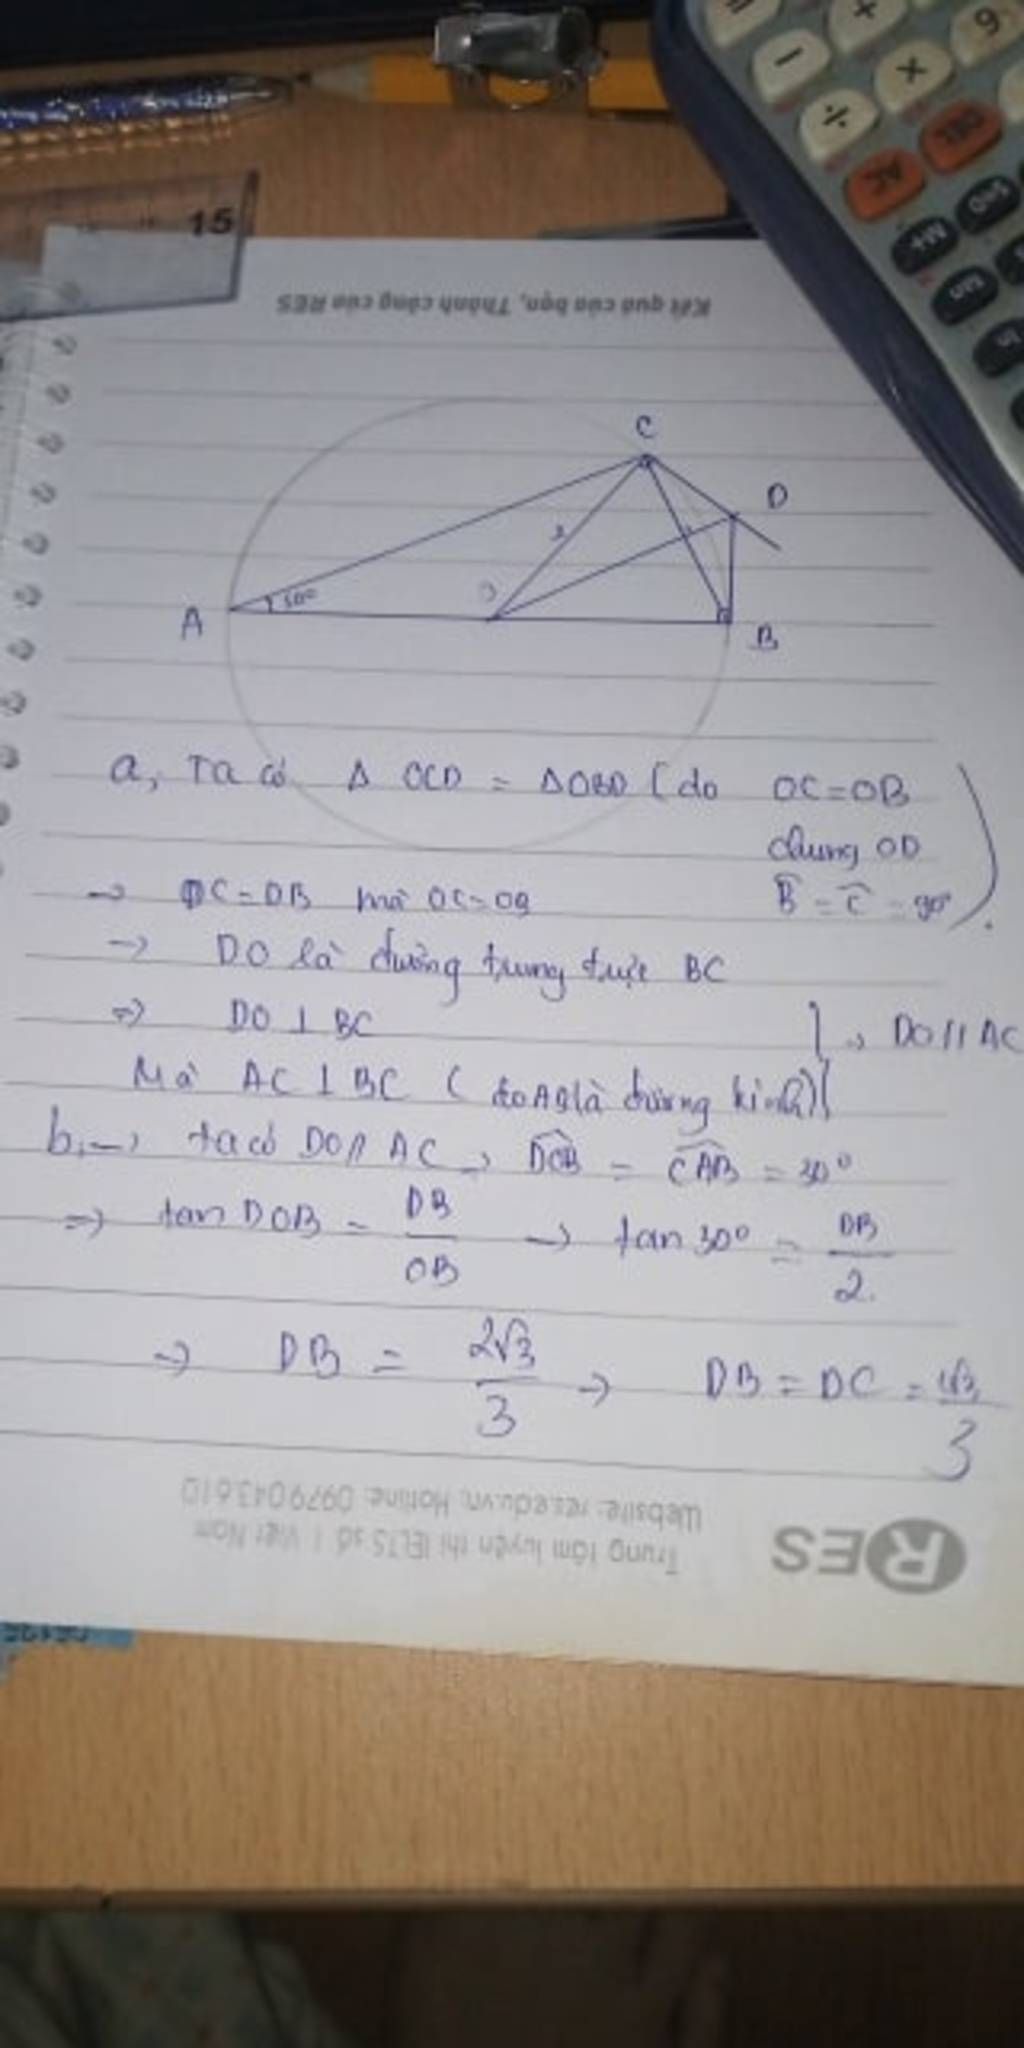 15
Kết quả của bạn, Thành công của RES
C
D
2
A
30°
O
B
a, Ta có Δ OCD = Δ OBD ( do OC = OB
chung OD
B̂ = Ĉ = 90° )
→ DC = DB mà OC = OB
→ DO là đường trung trực BC
⇒ DO ⊥ BC
} → DO // AC
Mà AC ⊥ BC ( do AB là đường kính )
b, → ta có DO // AC → DOB = CAB = 30°
⇒ tan DOB = DB/OB → tan 30° = DB/2.
→ DB = 2√3/3 → DB = DC = 2√3/3
RES
Trung tâm luyện thi IELTS số 1 Việt Nam
Website: res.edu.vn, Hotline: 0979043610
+
×
9
÷
AC
DEL
M+